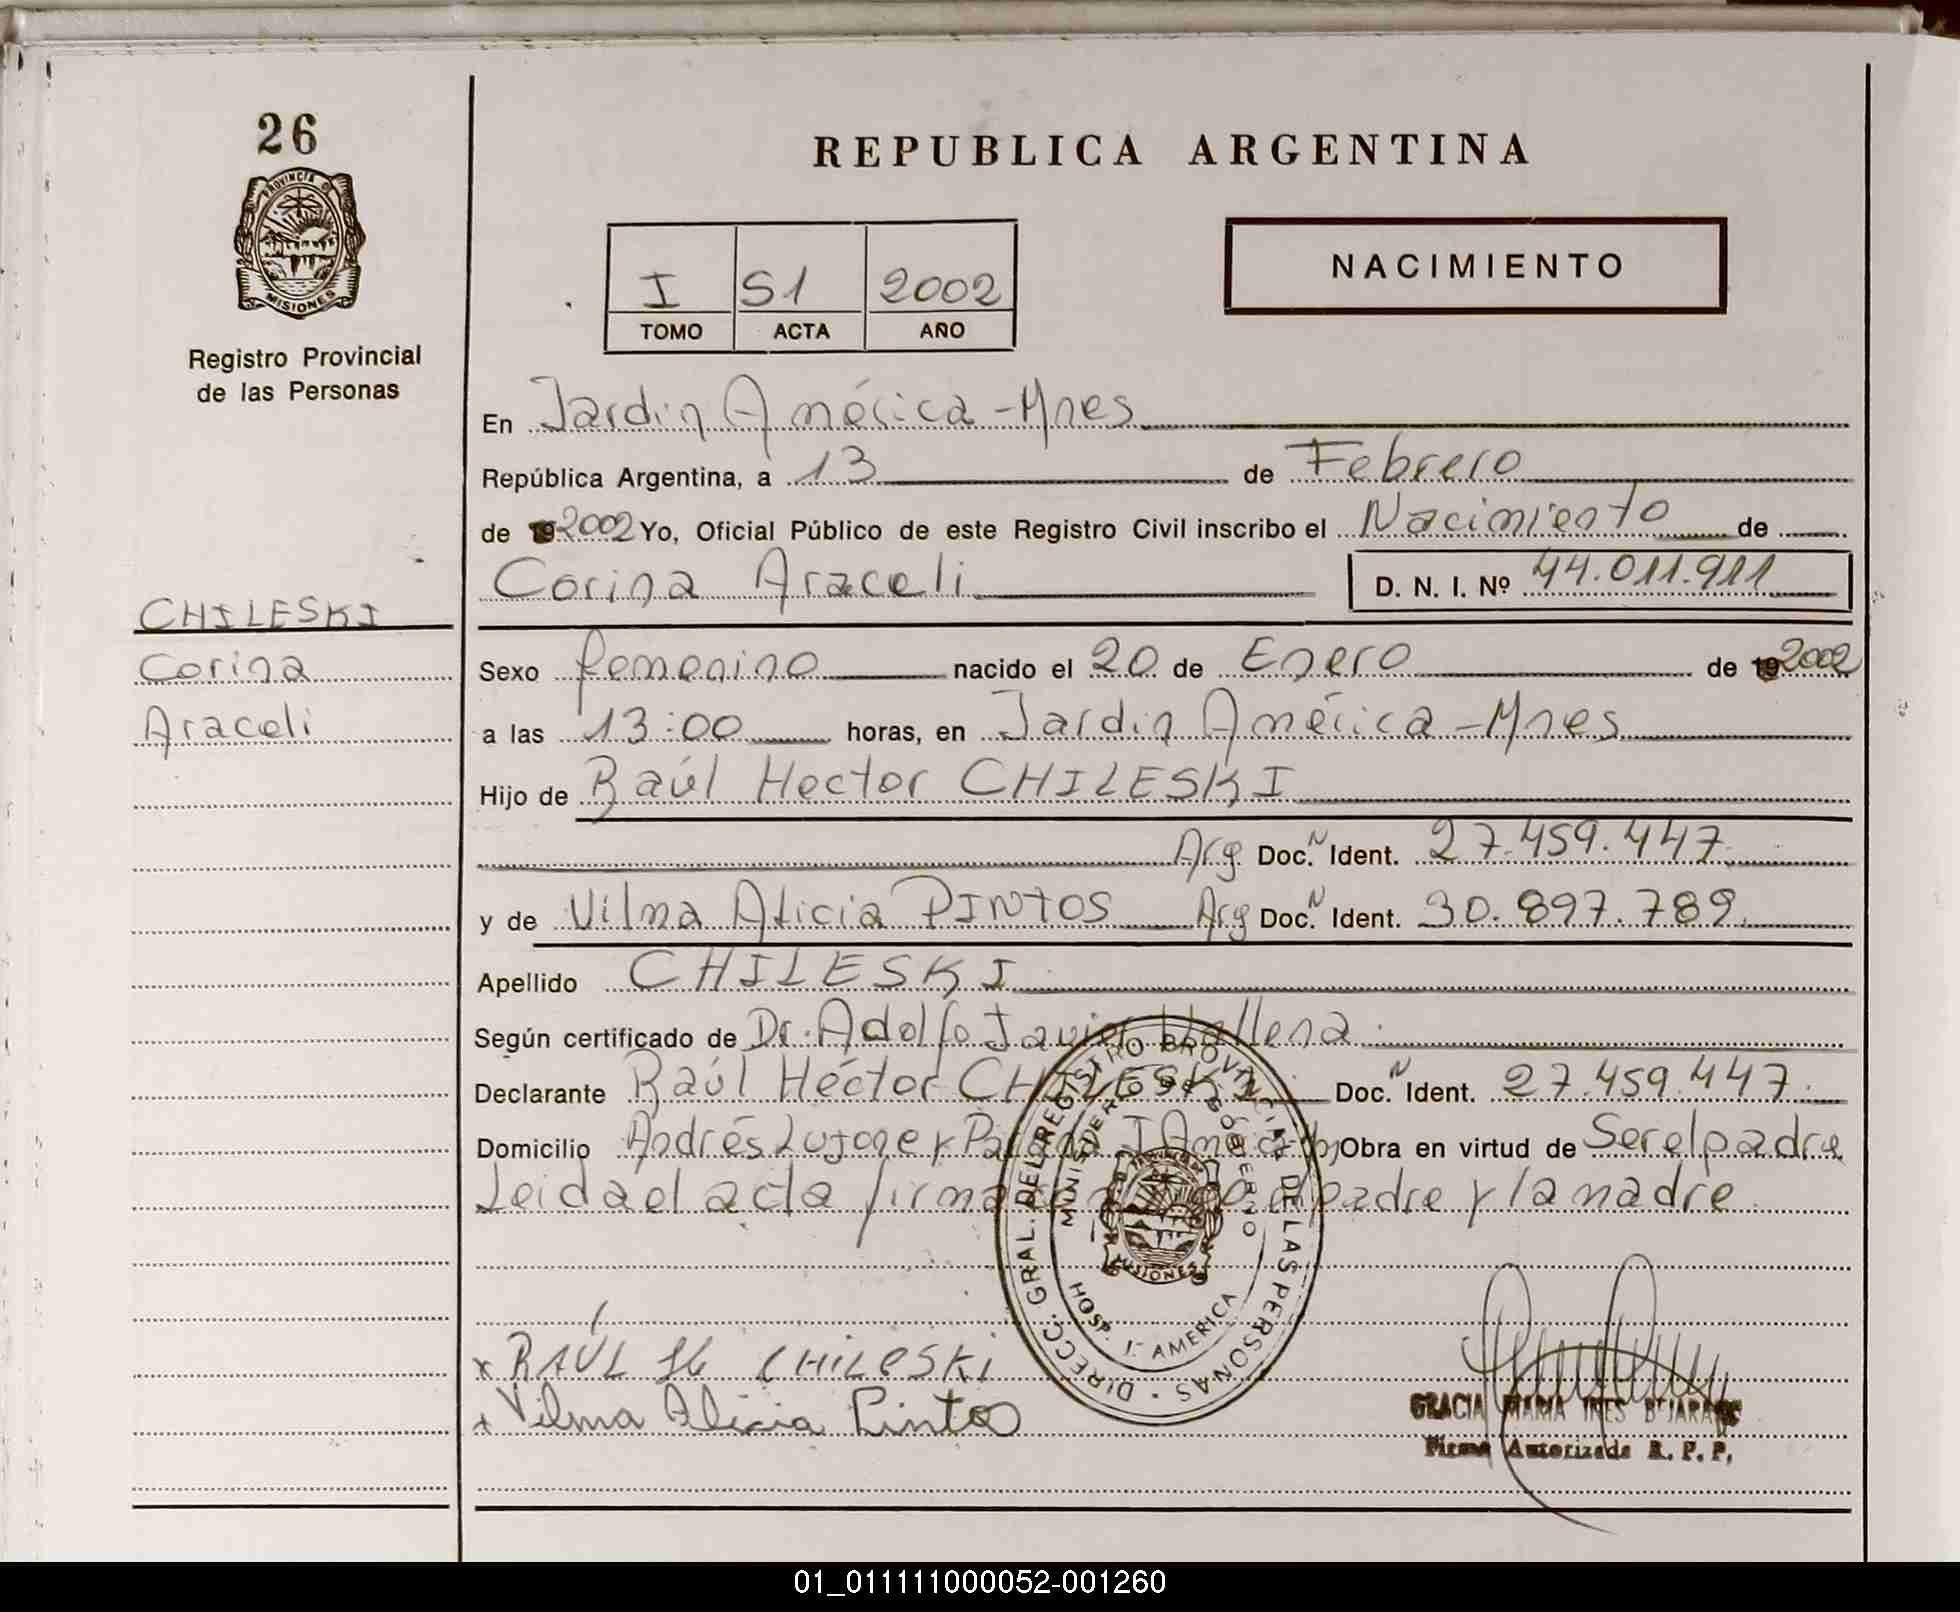 26
PROVINCIA DE
MISIONES
Registro Provincial
de las Personas
CHILESKI
Corina
Araceli
REPUBLICA ARGENTINA
I S1 2002
TOMO ACTA AÑO
NACIMIENTO
En Jardin América - Mnes
República Argentina, a 13 de Febrero
de 19 2002 Yo, Oficial Público de este Registro Civil inscribo el Nacimiento de
Corina Araceli D. N. I. Nº 44.011.911
Sexo femenino nacido el 20 de Enero de 19 2002
a las 13:00 horas, en Jardin América - Mnes
Hijo de Raúl Hector CHILESKI
Arg. Doc. N Ident. 27.459.447
y de Vilma Alicia PINTOS Arg Doc. N Ident. 30.897.789
Apellido CHILESKI
Según certificado de Dr. Adolfo Javier Wallena
Declarante Raúl Héctor CHILESKI Doc. N Ident. 27.459.447
Domicilio Andrés y J América Obra en virtud de Ser el padre
Leida el acta firman padre y la madre
DIRECC. GRAL. DEL REGISTRO PROVINCIAL DE LAS PERSONAS
MINISTERIO DE GOBIERNO
MISIONES
HOSP. J. AMERICA
x RAÚL H CHILESKI
x Vilma Alicia Pintos
GRACIA MARIA INES BEJARANO
Firma Autorizada R. P. P.
01_011111000052-001260